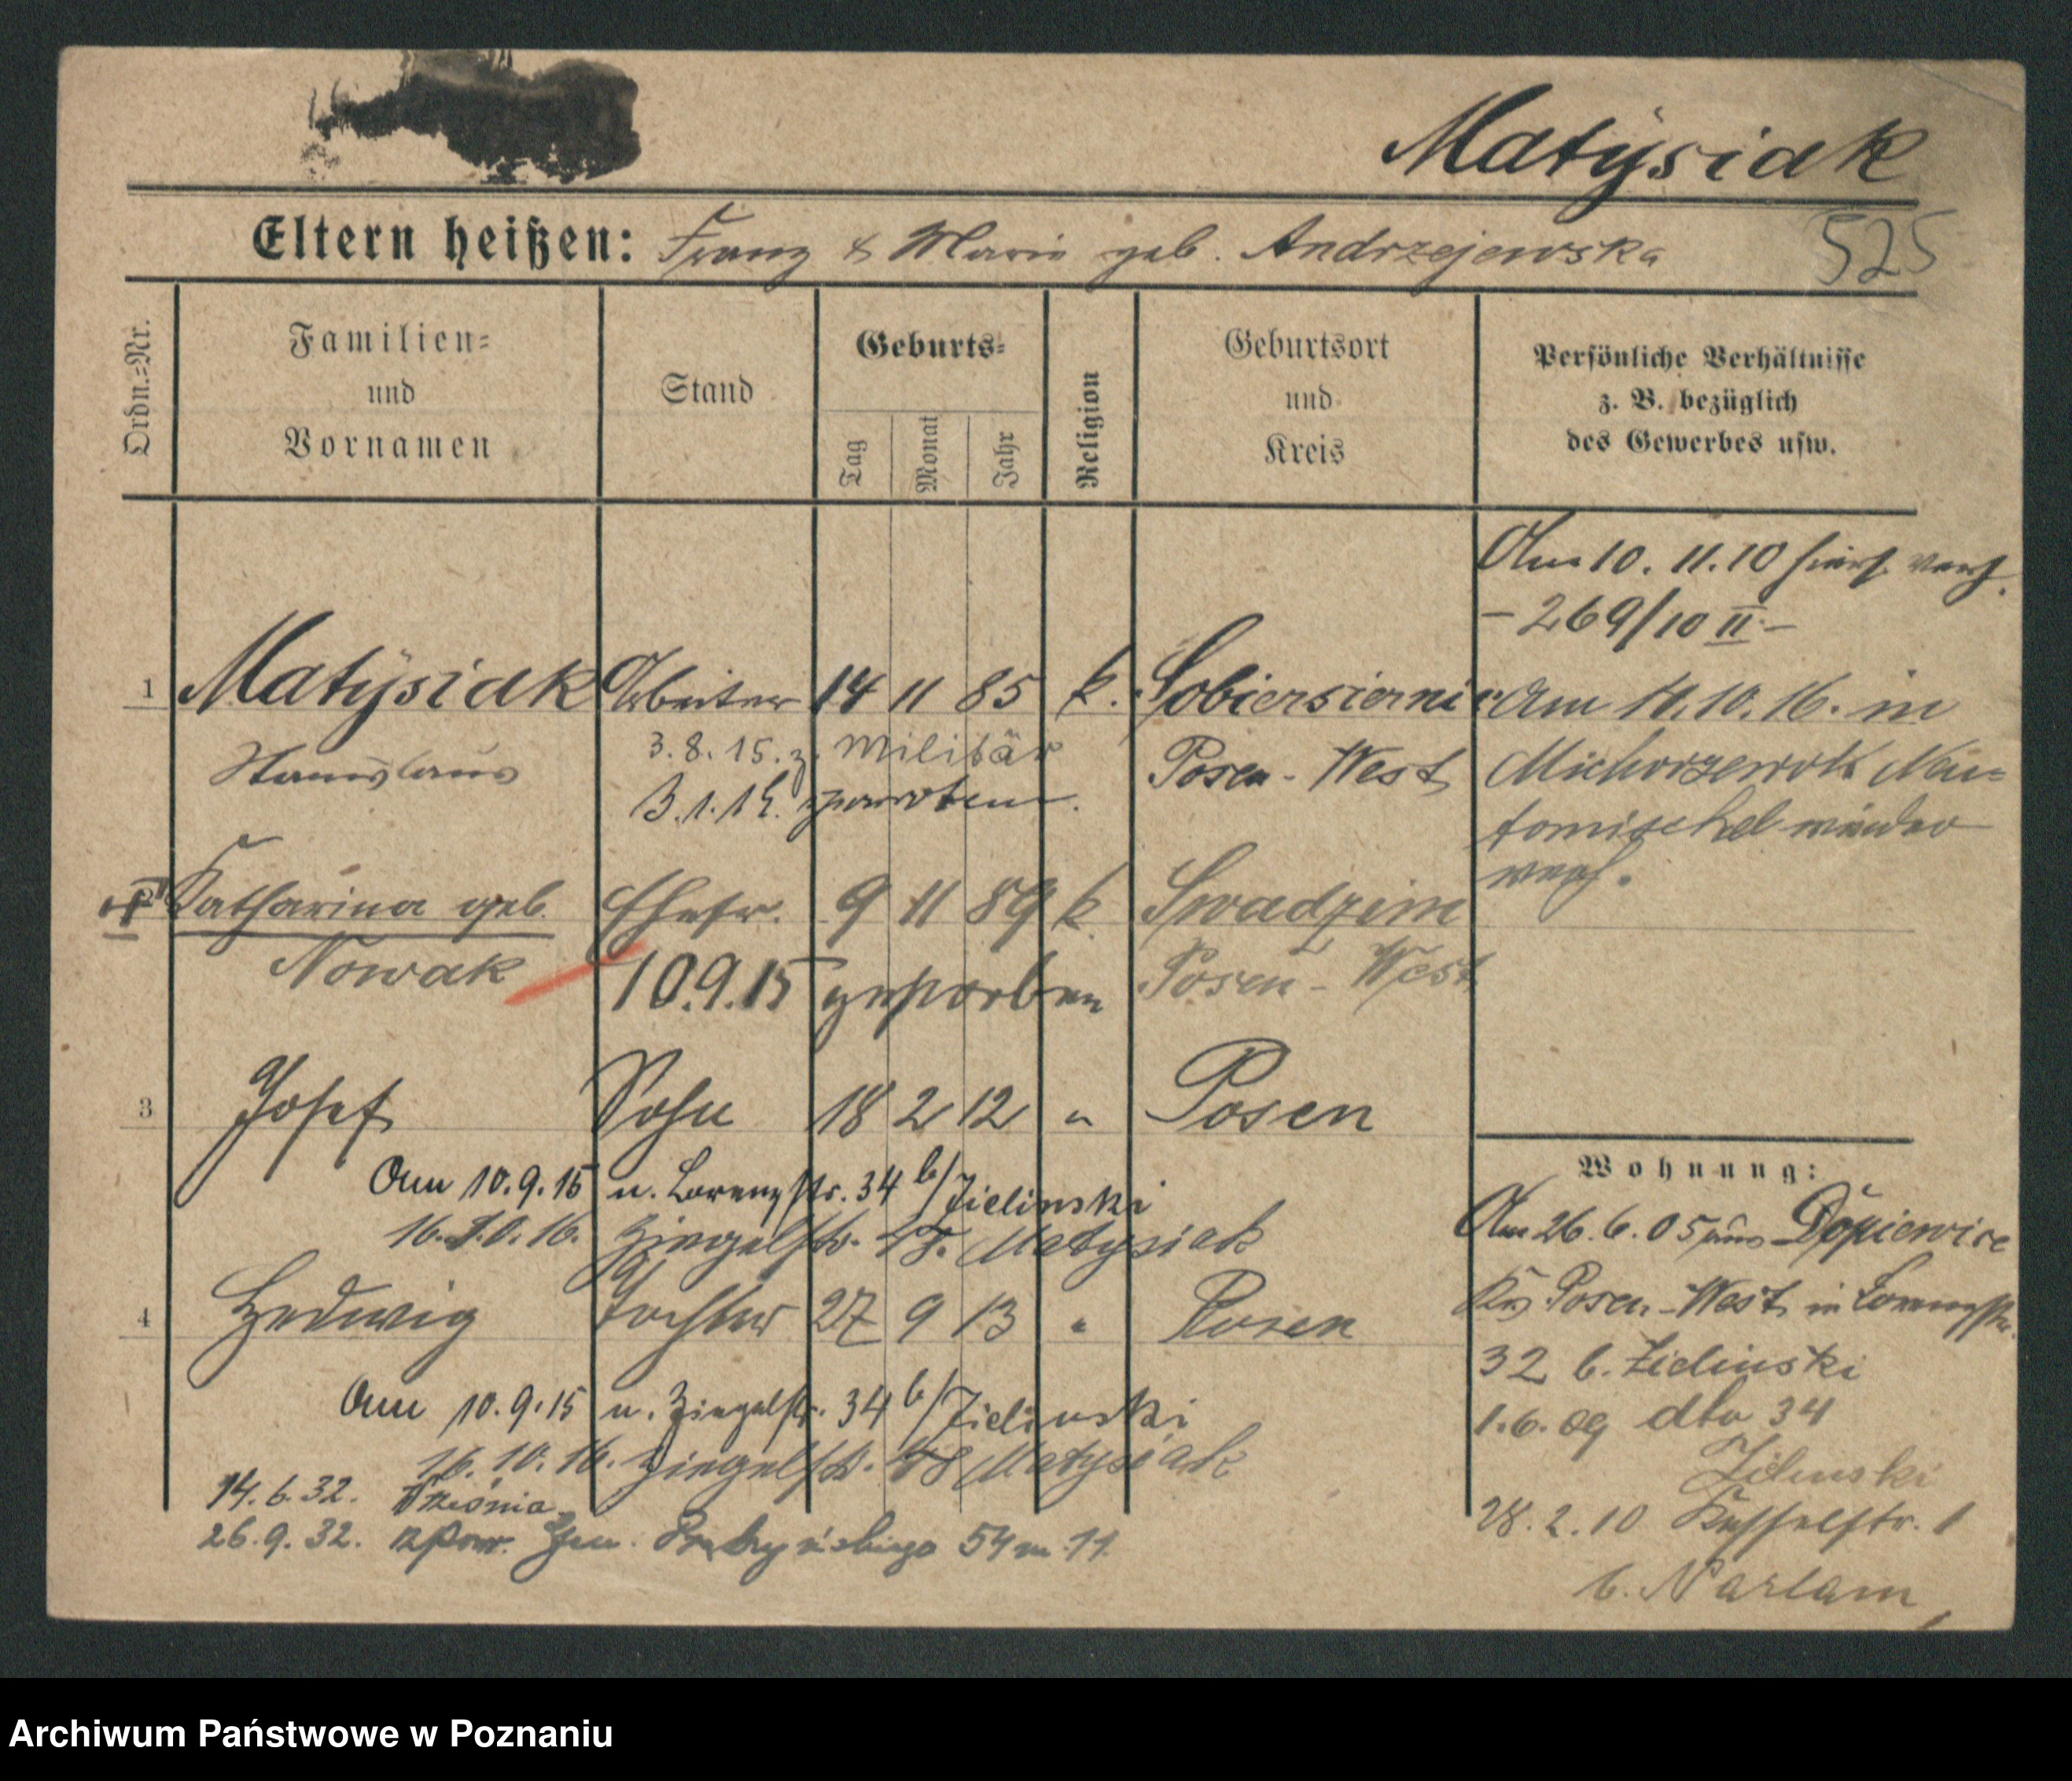 Matysiak
Eltern heißen: Franz & Marie geb. Andrzejewska
525
Ordn.=Nr.
Familien=
und
Vornamen
Stand
Geburts=
Tag
Monat
Jahr
Religion
Geburtsort
und
Kreis
Persönliche Verhältnisse
z. B. bezüglich
des Gewerbes usw.
Am 10. 11. 10 hiers. verh.
- 269/10 II -
1 Matysiak Arbeiter 14 11 85 k. Sobiersiernie
Stanislaus
3.8.15. z. Militär
Posen-West
Am 11.10.16. in
Michorzewok Neu=
tomischel wieder
verh.
Katharina geb. Ehefr. 9 11 89 k. Swadzim
Nowak
10.9.15 gestorben
Posen-West
3 Josef Sohn 18 2 12 " Posen
Am 10.9.15 n. Lorenzstr. 34 b/Zielinski
16.10.16. Ziegelstr. Matysiak
4 Hedwig Tochter 27 9 13 " Posen
Am 10.9.15 n. Ziegelstr. 34 b/Zielinski
16.10.16. Ziegelstr. Matysiak
14.6.32. Września
26.9.32. Gen. Prądzyńskiego 54 m. 11.
Wohnung:
Am 26.6.05 aus Dopiewice
Krs Posen-West in Lorenzstr.
32 b. Zielinski
1.6.09 dto 34
Zielinski
28.2.10 1
b. Narlam
Archiwum Państwowe w Poznaniu